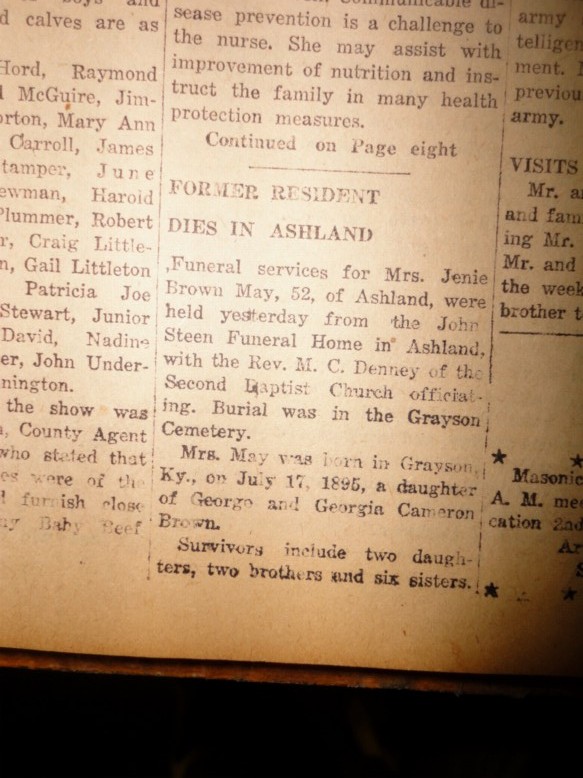 d calves are as
Hord, Raymond
McGuire, Jim-
orton, Mary Ann
Carroll, James
tamper, June
ewman, Harold
Plummer, Robert
r, Craig Little-
n, Gail Littleton
Patricia Joe
Stewart, Junior
David, Nadine
er, John Under-
nington.
the show was
, County Agent
who stated that
es were of the
furnish close
ny Baby Beef
sease prevention is a challenge to
the nurse. She may assist with
improvement of nutrition and ins-
truct the family in many health
protection measures.
Continued on Page eight
FORMER RESIDENT
DIES IN ASHLAND
Funeral services for Mrs. Jenie
Brown May, 52, of Ashland, were
held yesterday from the John
Steen Funeral Home in Ashland,
with the Rev. M. C. Denney of the
Second Baptist Church officiat-
ing. Burial was in the Grayson
Cemetery.
Mrs. May was born in Grayson,
Ky., on July 17, 1895, a daughter
of George and Georgia Cameron
Brown.
Survivors include two daugh-
ters, two brothers and six sisters.
army
telligen
ment.
previou
army.
VISITS
Mr. a
and fam
ing Mr.
Mr. and
the week
brother t
Masonic
A. M. me
cation 2nd
Ar